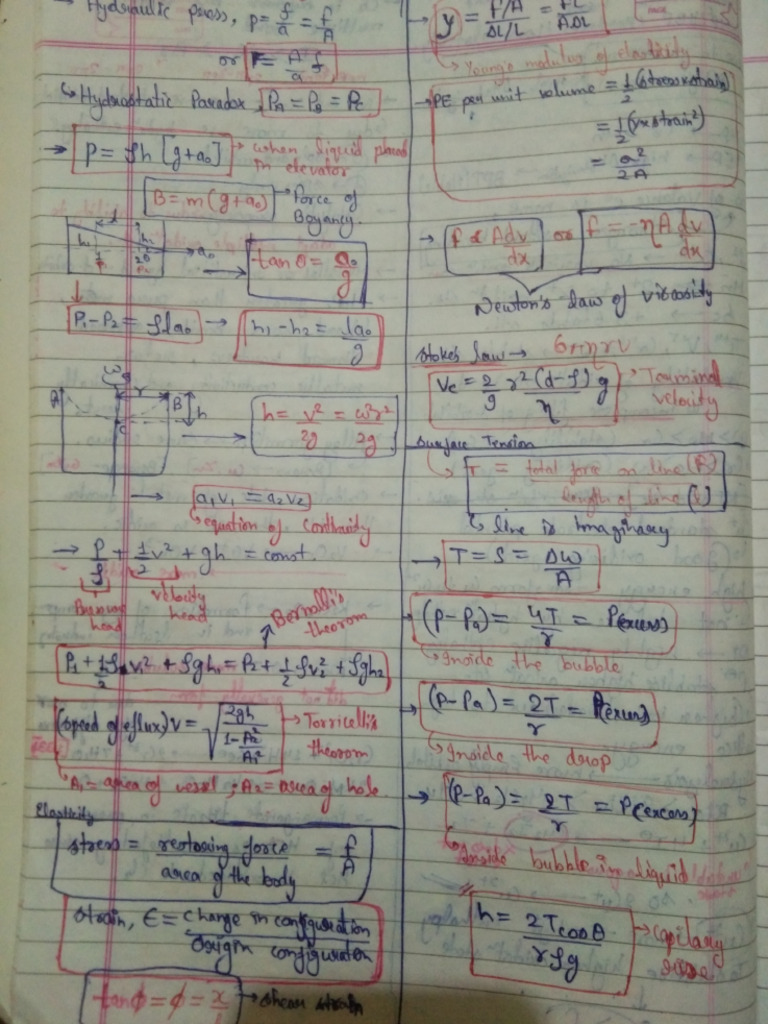 Hydraulic press, P = f/a = f/A
or F = A/a f
↳ Hydrostatic Paradox, PA = PB = PC
→ P = ρh [g+a₀] → when liquid placed
in elevator
B = m(g+a₀) → Force of
Boyancy.
l
h₁ h₂ → a₀ → tanθ = a₀/g
P₁-P₂ = ρla₀ → h₁-h₂ = la₀/g
ω r
A B h
C
→ h = v²/2g = ω²r²/2g
→ a₁v₁ = a₂v₂
↳ equation of contnuity
→ P/ρ + 1/2 v² + gh = const.
Pressure head velocity head
Bernolli's
theorom
P₁ + 1/2 ρv₁² + ρgh₁ = P₂ + 1/2 ρv₂² + ρgh₂
(speed of eflux) v = √(2gh/(1-A₂²/A₁²)) → Torricelli's
theorom
↳ A₁ = area of vessel ; A₂ = area of hole
Elasticity
stress = restoring force/area of the body = f/A
strain, ϵ = change in configuration/origin configuration
tanϕ = ϕ = x/L → shear strain
→ y = (F/A)/(ΔL/L) = FL/AΔL
↳ Young's modulus of elasticity
→ PE per unit volume = 1/2 (stress×strain)
= 1/2 (y×strain²)
= a²/2A
→ f ∝ A dv/dx or f = -ηA dv/dx
Newton's law of viscosity
stoke's law → 6πηrv
Vc = 2/9 r² (d-ρ)g/η → Terminal
velocity
Surface Tension
↳ T = total force on line (F)/length of line (L)
↳ line is Imaginary
→ T = S = ΔW/A
→ (P-Pa) = 4T/r = P(excess)
↳ Inside the bubble
→ (P-Pa) = 2T/r = P(excess)
↳ Inside the drop
→ (P-Pa) = 2T/r = P(excess)
↳ Inside bubble in liquid
h = 2Tcosθ/rρg → capilary
rise